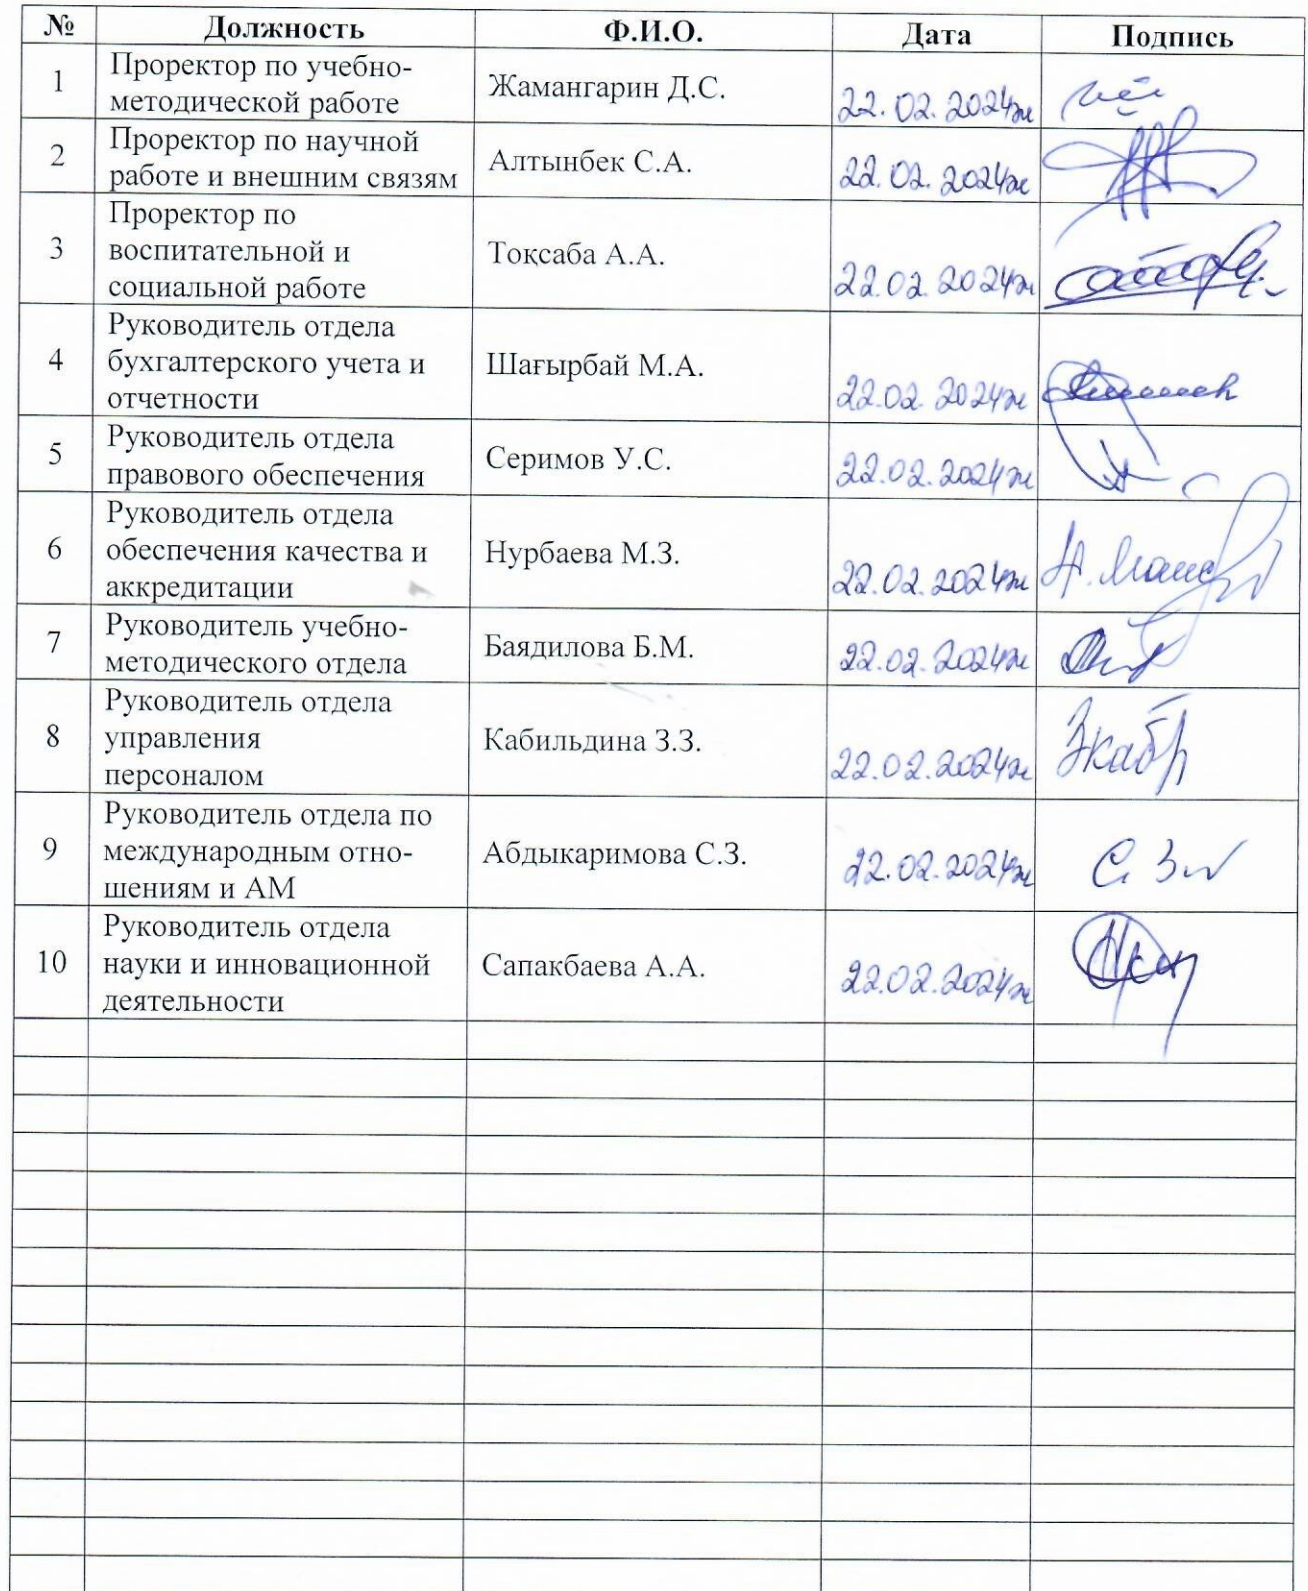 № Должность Ф.И.О. Дата Подпись
1 Проректор по учебно-
методической работе Жамангарин Д.С. 22.02.2024ж
2 Проректор по научной
работе и внешним связям Алтынбек С.А. 22.02.2024ж
3 Проректор по
воспитательной и
социальной работе Тоқсаба А.А. 22.02.2024ж
4 Руководитель отдела
бухгалтерского учета и
отчетности Шағырбай М.А. 22.02.2024ж
5 Руководитель отдела
правового обеспечения Серимов У.С. 22.02.2024ж
6 Руководитель отдела
обеспечения качества и
аккредитации Нурбаева М.З. 22.02.2024ж
7 Руководитель учебно-
методического отдела Баядилова Б.М. 22.02.2024ж
8 Руководитель отдела
управления
персоналом Кабильдина З.З. 22.02.2024ж
9 Руководитель отдела по
международным отно-
шениям и АМ Абдыкаримова С.З. 22.02.2024ж
10 Руководитель отдела
науки и инновационной
деятельности Сапакбаева А.А. 22.02.2024ж